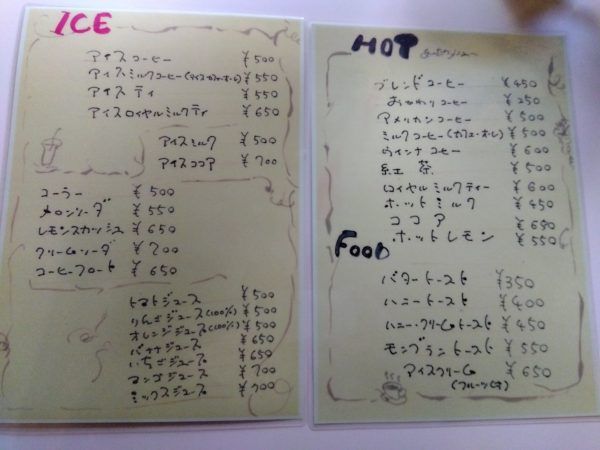 ICE
アイスコーヒー ¥500
アイスミルクコーヒー(アイスカフェオーレ) ¥550
アイスティ ¥550
アイスロイヤルミルクティ ¥650
アイスミルク ¥500
アイスココア ¥700
コーラー ¥500
メロンソーダ ¥550
レモンスカッシュ ¥650
クリームソーダ ¥700
コーヒーフロート ¥650
トマトジュース ¥500
りんごジュース(100%) ¥500
オレンジジュース(100%) ¥500
バナナジュース ¥650
いちごジュース ¥650
マンゴジュース ¥700
ミックスジュース ¥700
HOT
ブレンドコーヒー ¥450
おかわりコーヒー ¥250
アメリカンコーヒー ¥500
ミルクコーヒー(カフェ・オレ) ¥500
ウインナコーヒー ¥600
紅茶 ¥500
ロイヤルミルクティー ¥600
ホットミルク ¥450
ココア ¥650
ホットレモン ¥550
FOOD
バタートースト ¥350
ハニートースト ¥400
ハニー・クリームトースト ¥450
モンブラントースト ¥550
アイスクリーム ¥650